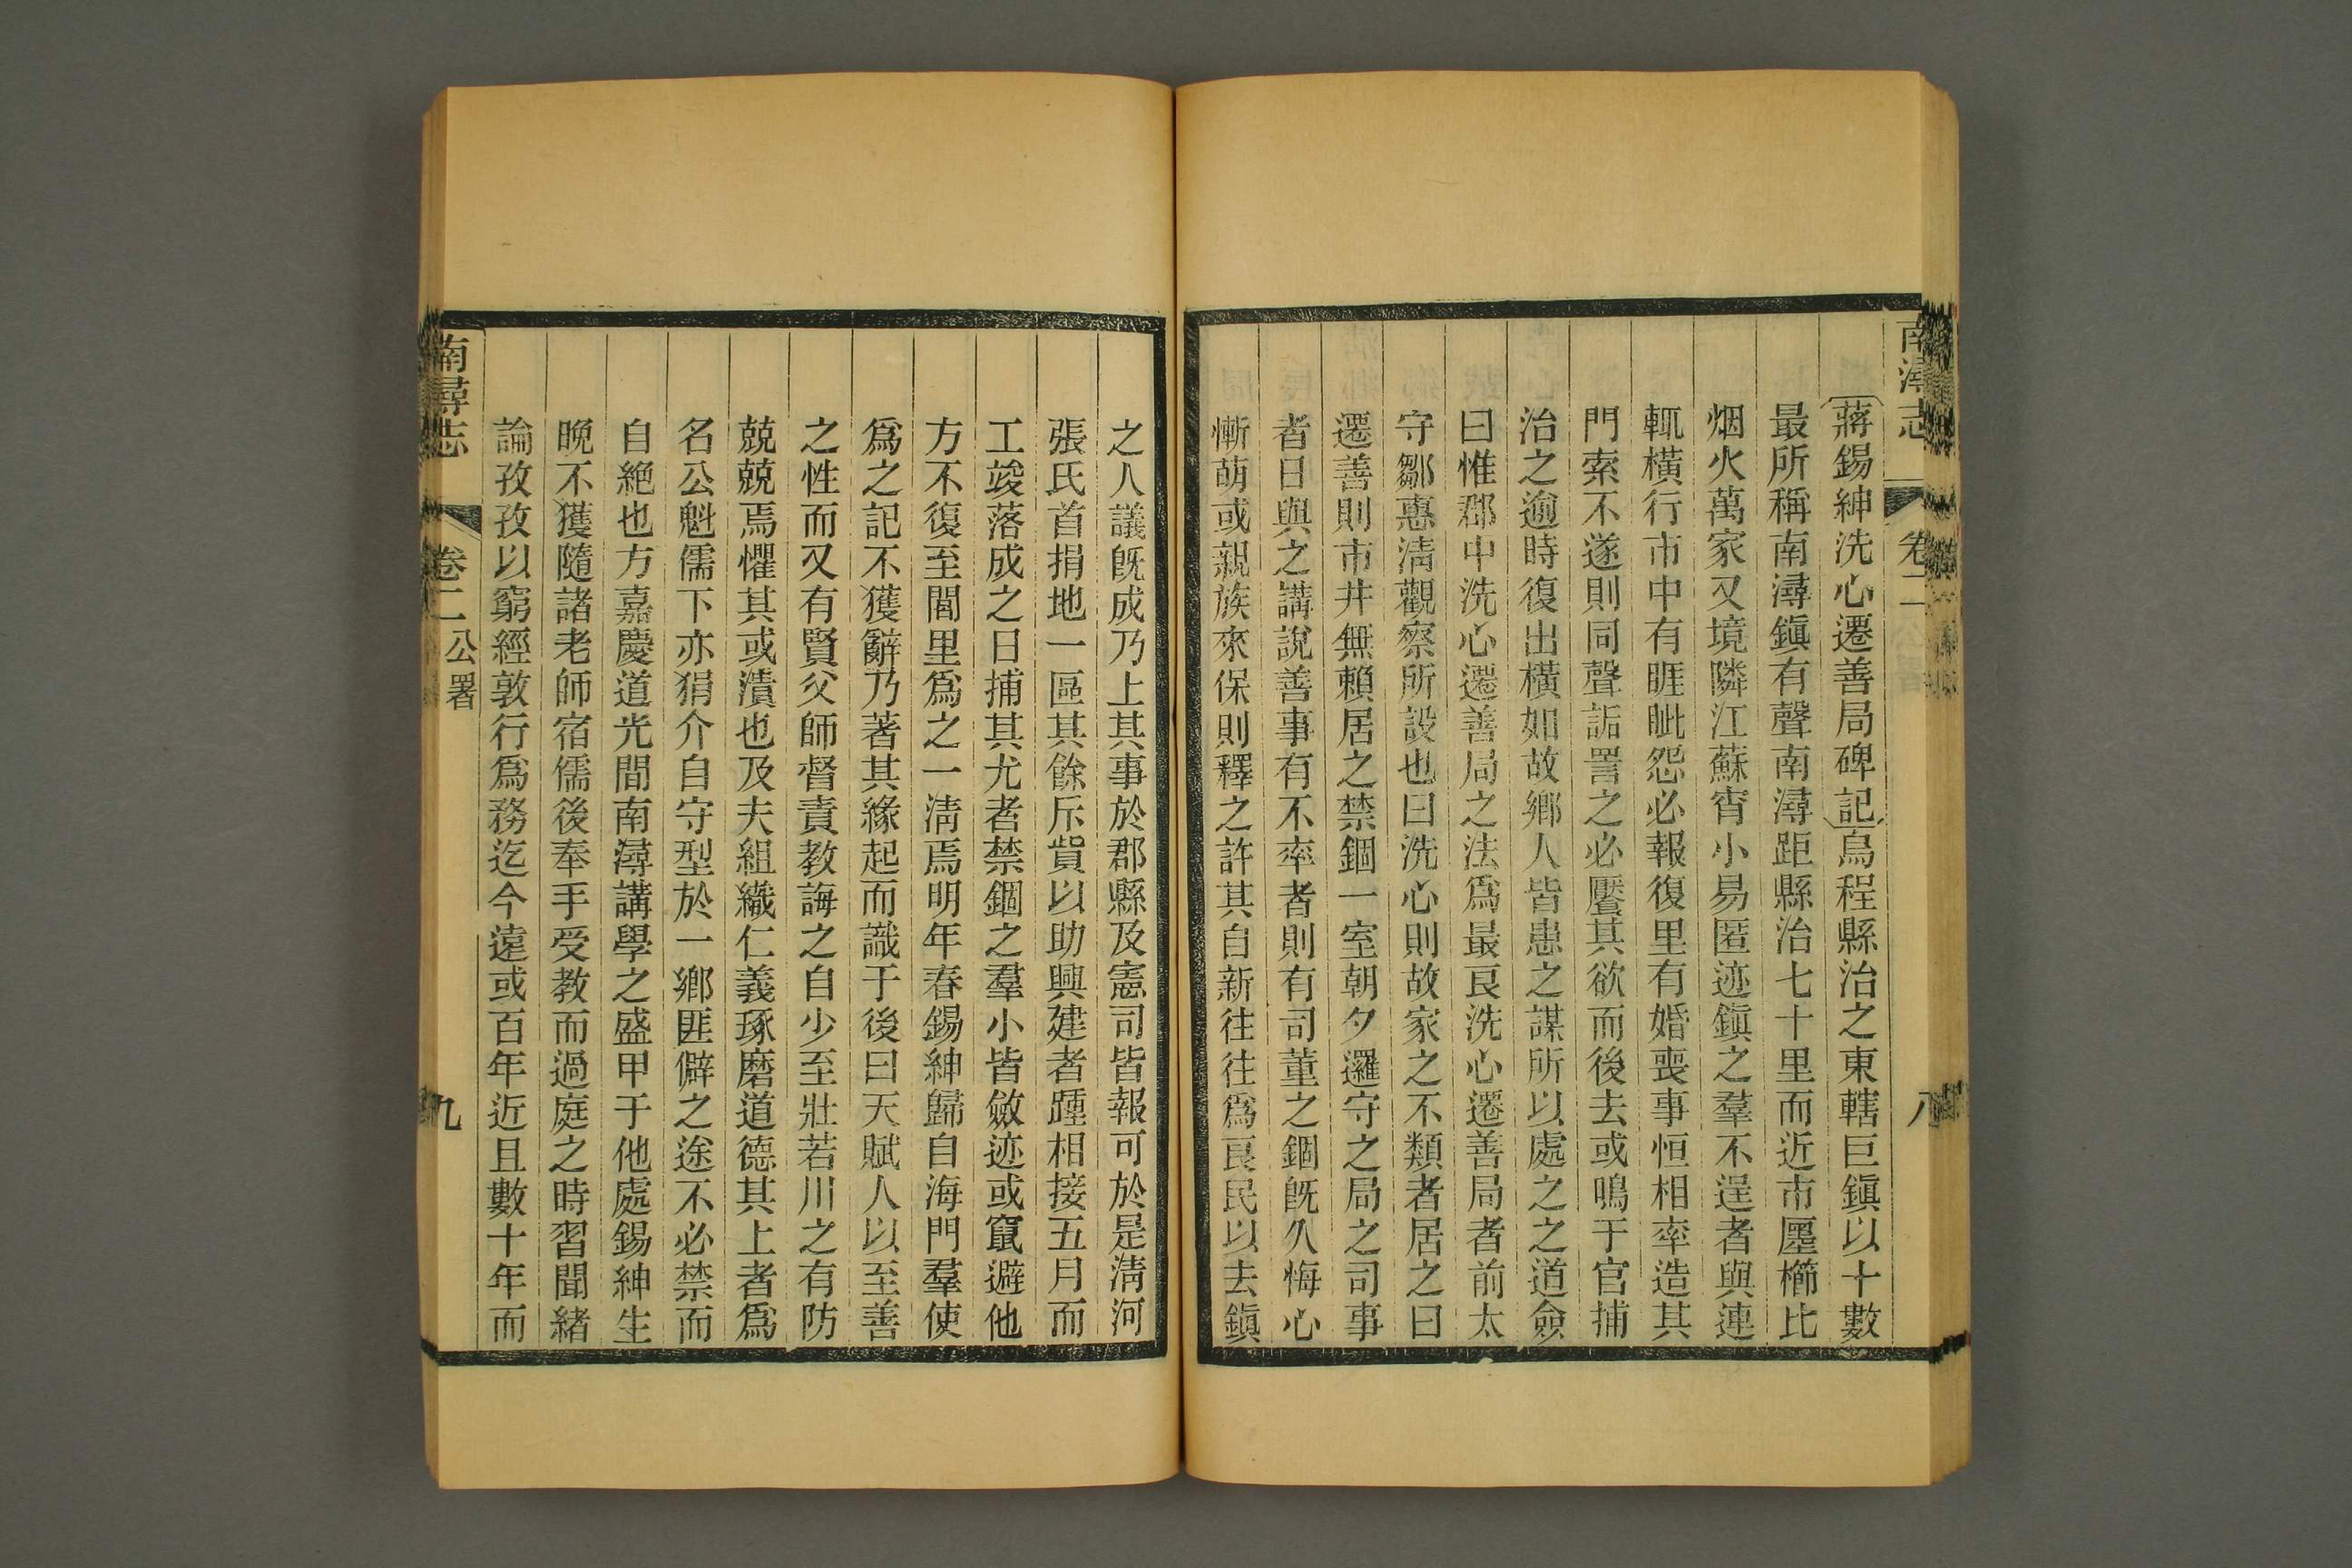 南潯志
卷二
八
蔣錫紳洗心遷善局碑記烏程縣治之東轄巨鎭以十數
最所稱南潯鎭有聲南潯距縣治七十里而近市廛櫛比
烟火萬家又境隣江蘇宵小易匿迹鎭之羣不逞者與連
輒橫行市中有睚眦怨必報復里有婚喪事恒相率造其
門索不遂則同聲詬詈之必饜其欲而後去或鳴于官捕
治之逾時復出橫如故鄉人皆患之謀所以處之之道僉
曰惟郡中洗心遷善局之法爲最良洗心遷善局者前太
守鄒惠淸觀察所設也曰洗心則故家之不類者居之曰
遷善則市井無賴居之禁錮一室朝夕邏守之局之司事
者日與之講說善事有不率者則有司董之錮旣久悔心
慚萌或親族來保則釋之許其自新往往爲良民以去鎭
之人議旣成乃上其事於郡縣及憲司皆報可於是淸河
張氏首捐地一區其餘斥貲以助興建者踵相接五月而
工竣落成之日捕其尤者禁錮之羣小皆斂迹或竄避他
方不復至閭里爲之一淸焉明年春錫紳歸自海門羣使
爲之記不獲辭乃著其緣起而識于後曰天賦人以至善
之性而又有賢父師督責教誨之自少至壯若川之有防
兢兢焉懼其或潰也及夫組織仁義琢磨道德其上者爲
名公魁儒下亦狷介自守型於一鄉匪僻之途不必禁而
自絕也方嘉慶道光間南潯講學之盛甲于他處錫紳生
晚不獲隨諸老師宿儒後奉手受教而過庭之時習聞緒
論孜孜以窮經敦行爲務迄今遠或百年近且數十年而
南潯志
卷二
公署
九